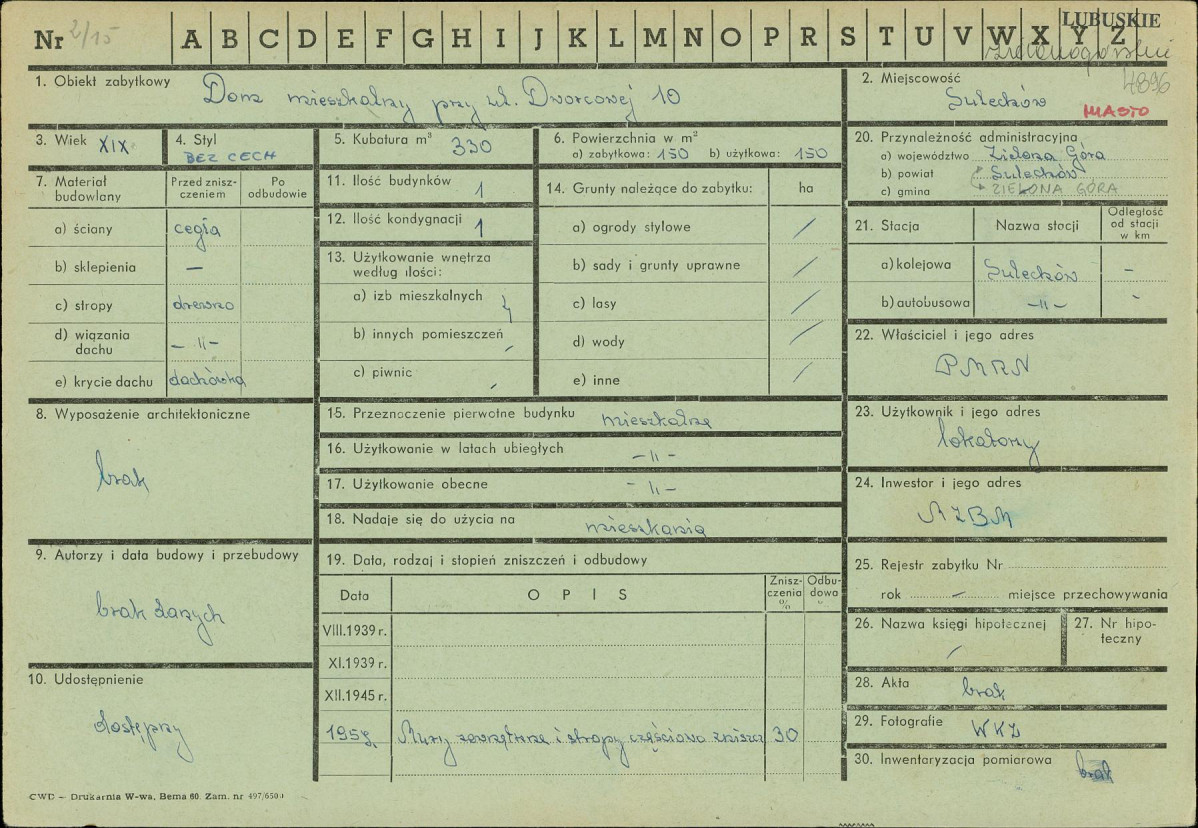 Nr 2/15 A B C D E F G H I J K L M N O P R S T U V W X Y Z LUBUSKIE
zielonogórskie
4896
1. Obiekt zabytkowy Dom mieszkalny przy ul. Dworcowej 10
2. Miejscowość
Sulechów MIASTO
3. Wiek XIX
4. Styl BEZ CECH
5. Kubatura m³ 330
6. Powierzchnia w m²
a) zabytkowa: 150 b) użytkowa: 150
20. Przynależność administracyjna
a) województwo Zielona Góra
b) powiat Sulechów
c) gmina ZIELONA GÓRA
7. Materiał budowlany
Przed zniszczeniem
Po odbudowie
a) ściany cegła
b) sklepienia —
c) stropy drewno
d) wiązania dachu — 11 —
e) krycie dachu dachówka
11. Ilość budynków 1
12. Ilość kondygnacji 1
13. Użytkowanie wnętrza
według ilości:
a) izb mieszkalnych
b) innych pomieszczeń
c) piwnic
14. Grunty należące do zabytku: ha
a) ogrody stylowe /
b) sady i grunty uprawne /
c) lasy /
d) wody /
e) inne /
21. Stacja Nazwa stacji Odległość od stacji w km
a) kolejowa Sulechów –
b) autobusowa – 11 – -
22. Właściciel i jego adres
PMRN
8. Wyposażenie architektoniczne
brak
15. Przeznaczenie pierwotne budynku mieszkalne
16. Użytkowanie w latach ubiegłych – 11 –
17. Użytkowanie obecne – 11 –
18. Nadaje się do użycia na mieszkania
23. Użytkownik i jego adres
lokatorzy
24. Inwestor i jego adres
MZBM
9. Autorzy i data budowy i przebudowy
brak danych
19. Data, rodzaj i stopień zniszczeń i odbudowy
Data OPIS Zniszczenia % Odbudowa
VIII.1939 r.
XI.1939 r.
XII.1945 r.
Mury zewnętrzne i stropy częściowo zniszcz 30
25. Rejestr zabytku Nr
rok — miejsce przechowywania
26. Nazwa księgi hipotecznej /
27. Nr hipoteczny
10. Udostępnienie
dostępny
28. Akta brak
29. Fotografie WKZ
30. Inwentaryzacja pomiarowa brak
CWD – Drukarnia W-wa, Bema 60. Zam. nr 497/6500